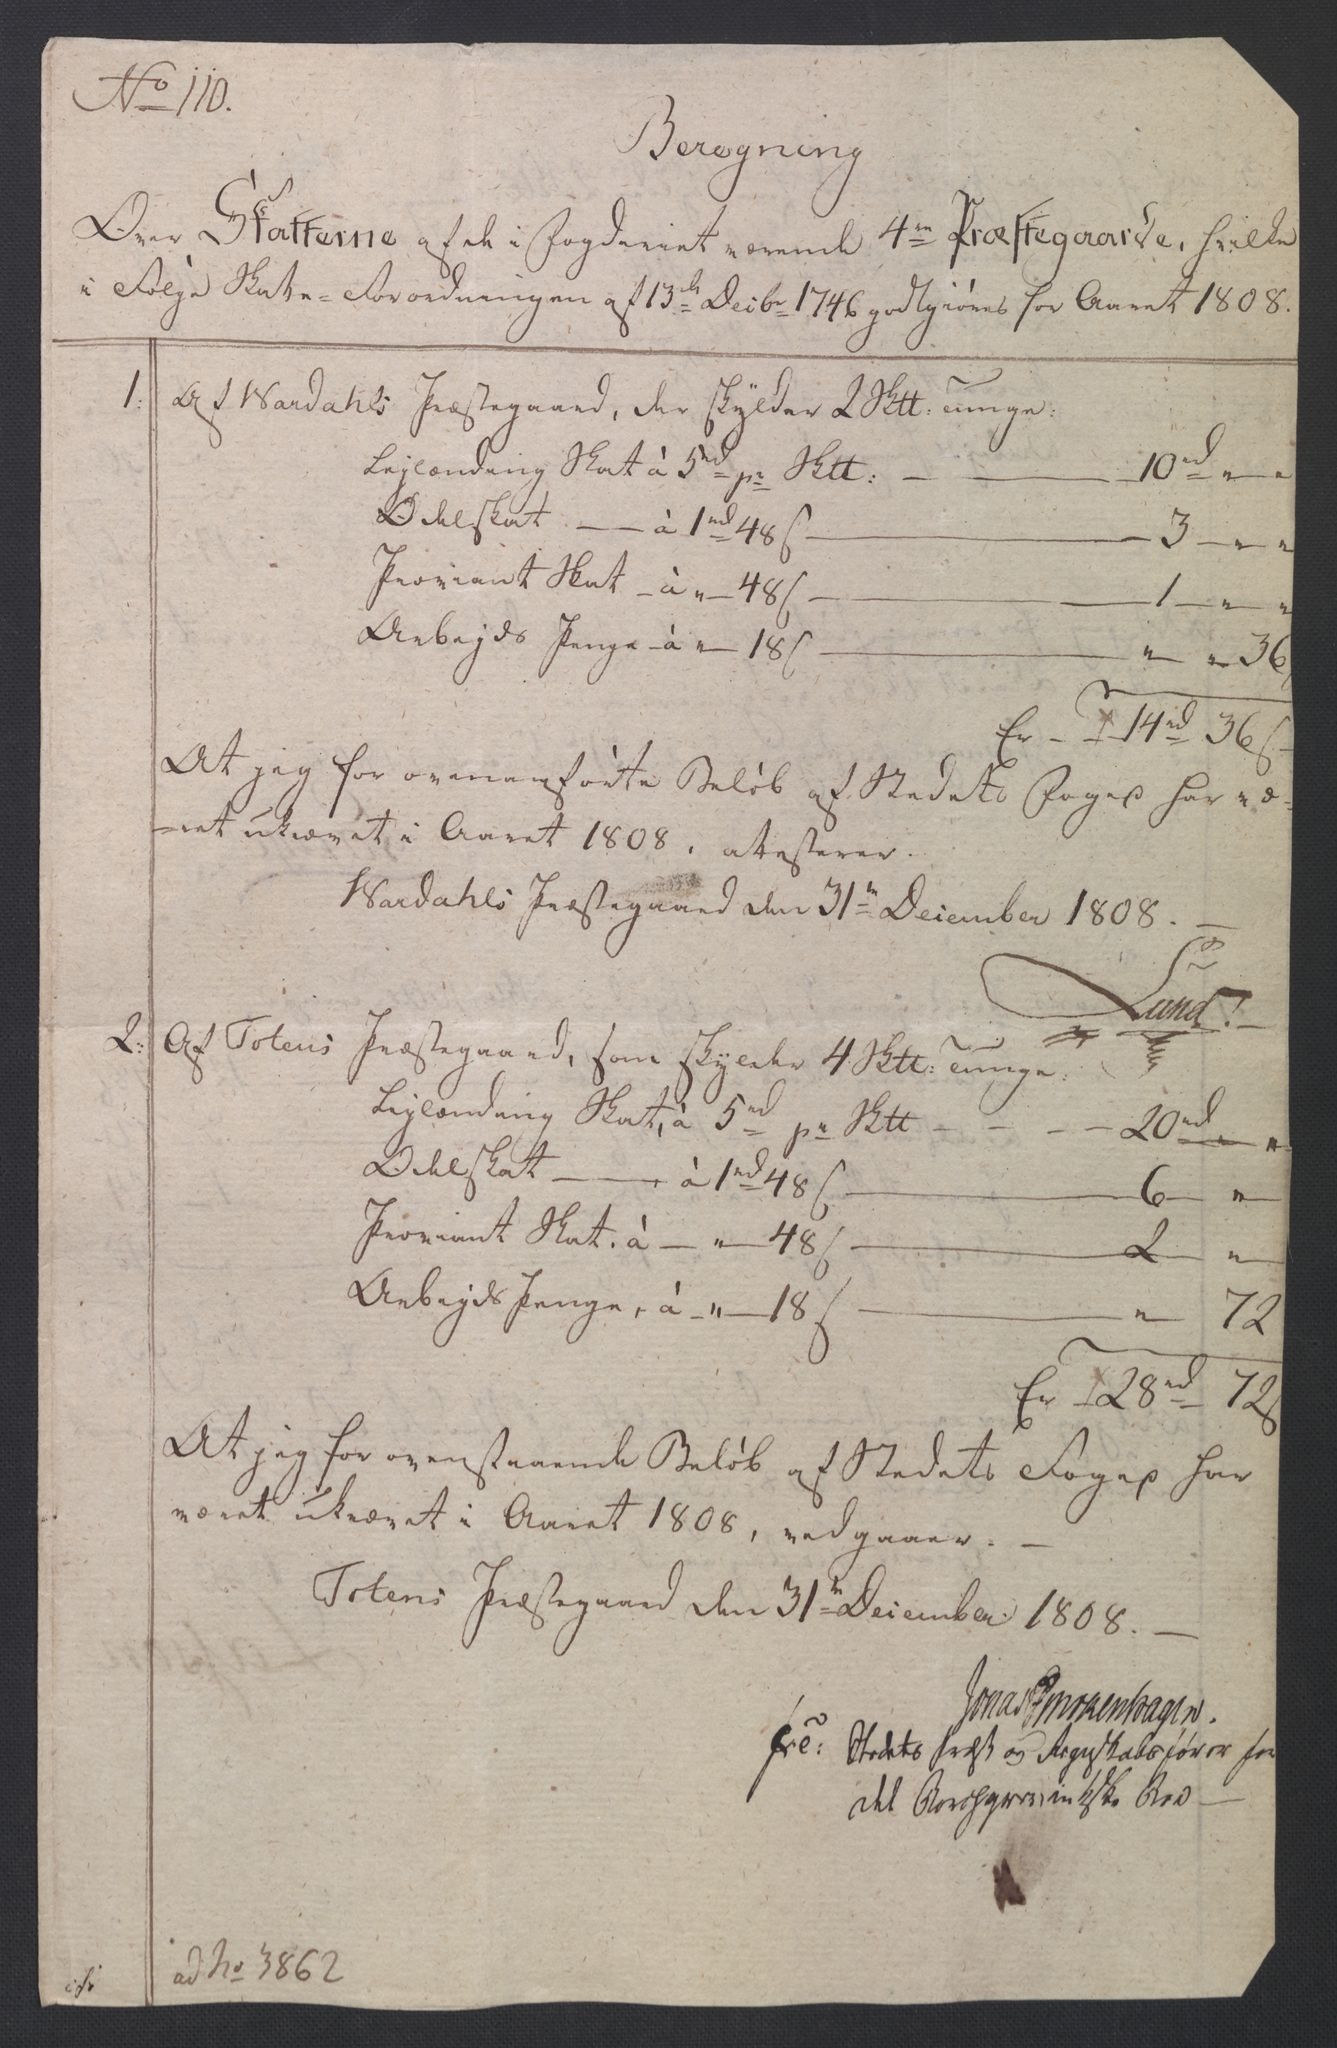 No 110.
Beregning
Over Skatterne af de i Fogderiet værende 4re Præstegaarde, hvilke
i Følge Skatte-Forordningen af 13de Decbr 1746 godtgiøres for Aaret 1808.
1. Af Wardahls Præstegaard, der skylder 2 Sktt: tunge:
Leylænding Skat à 5rd pr Sktt: — 10rd " "
Odelskat — à 1rd 48 s — 3 — " "
Proviant Skat — à " — 48 s — 1 — " "
Arbejds Penge à " — 18 s — " " 36
Er — 14rd 36 s
At jeg for ovenanførte Beløb af Stedets Foged har væ-
-ret ukrævet i Aaret 1808, attesterer.
Wardahls Præstegaard den 31te December 1808. —
Lund.
2. Af Totens Præstegaard, som skylder 4 Sktt: tunge:
Leylænding Skat, à 5rd pr Sktt — 20rd " "
Odelskat — à 1rd 48 s — 6 — "
Proviant Skat. à — " — 48 s — 2 — "
Arbejds Penge, à — " — 18 s — " 72
Er 28rd 72 s
At jeg for ovenstaaende Beløb af Stedets Foged har
været ukrævet i Aaret 1808, vedgaaer. —
Totens Præstegaard den 31te December 1808. —
Jonas
Stedets Præst og Regnskabsfører for
det
ad No 3862